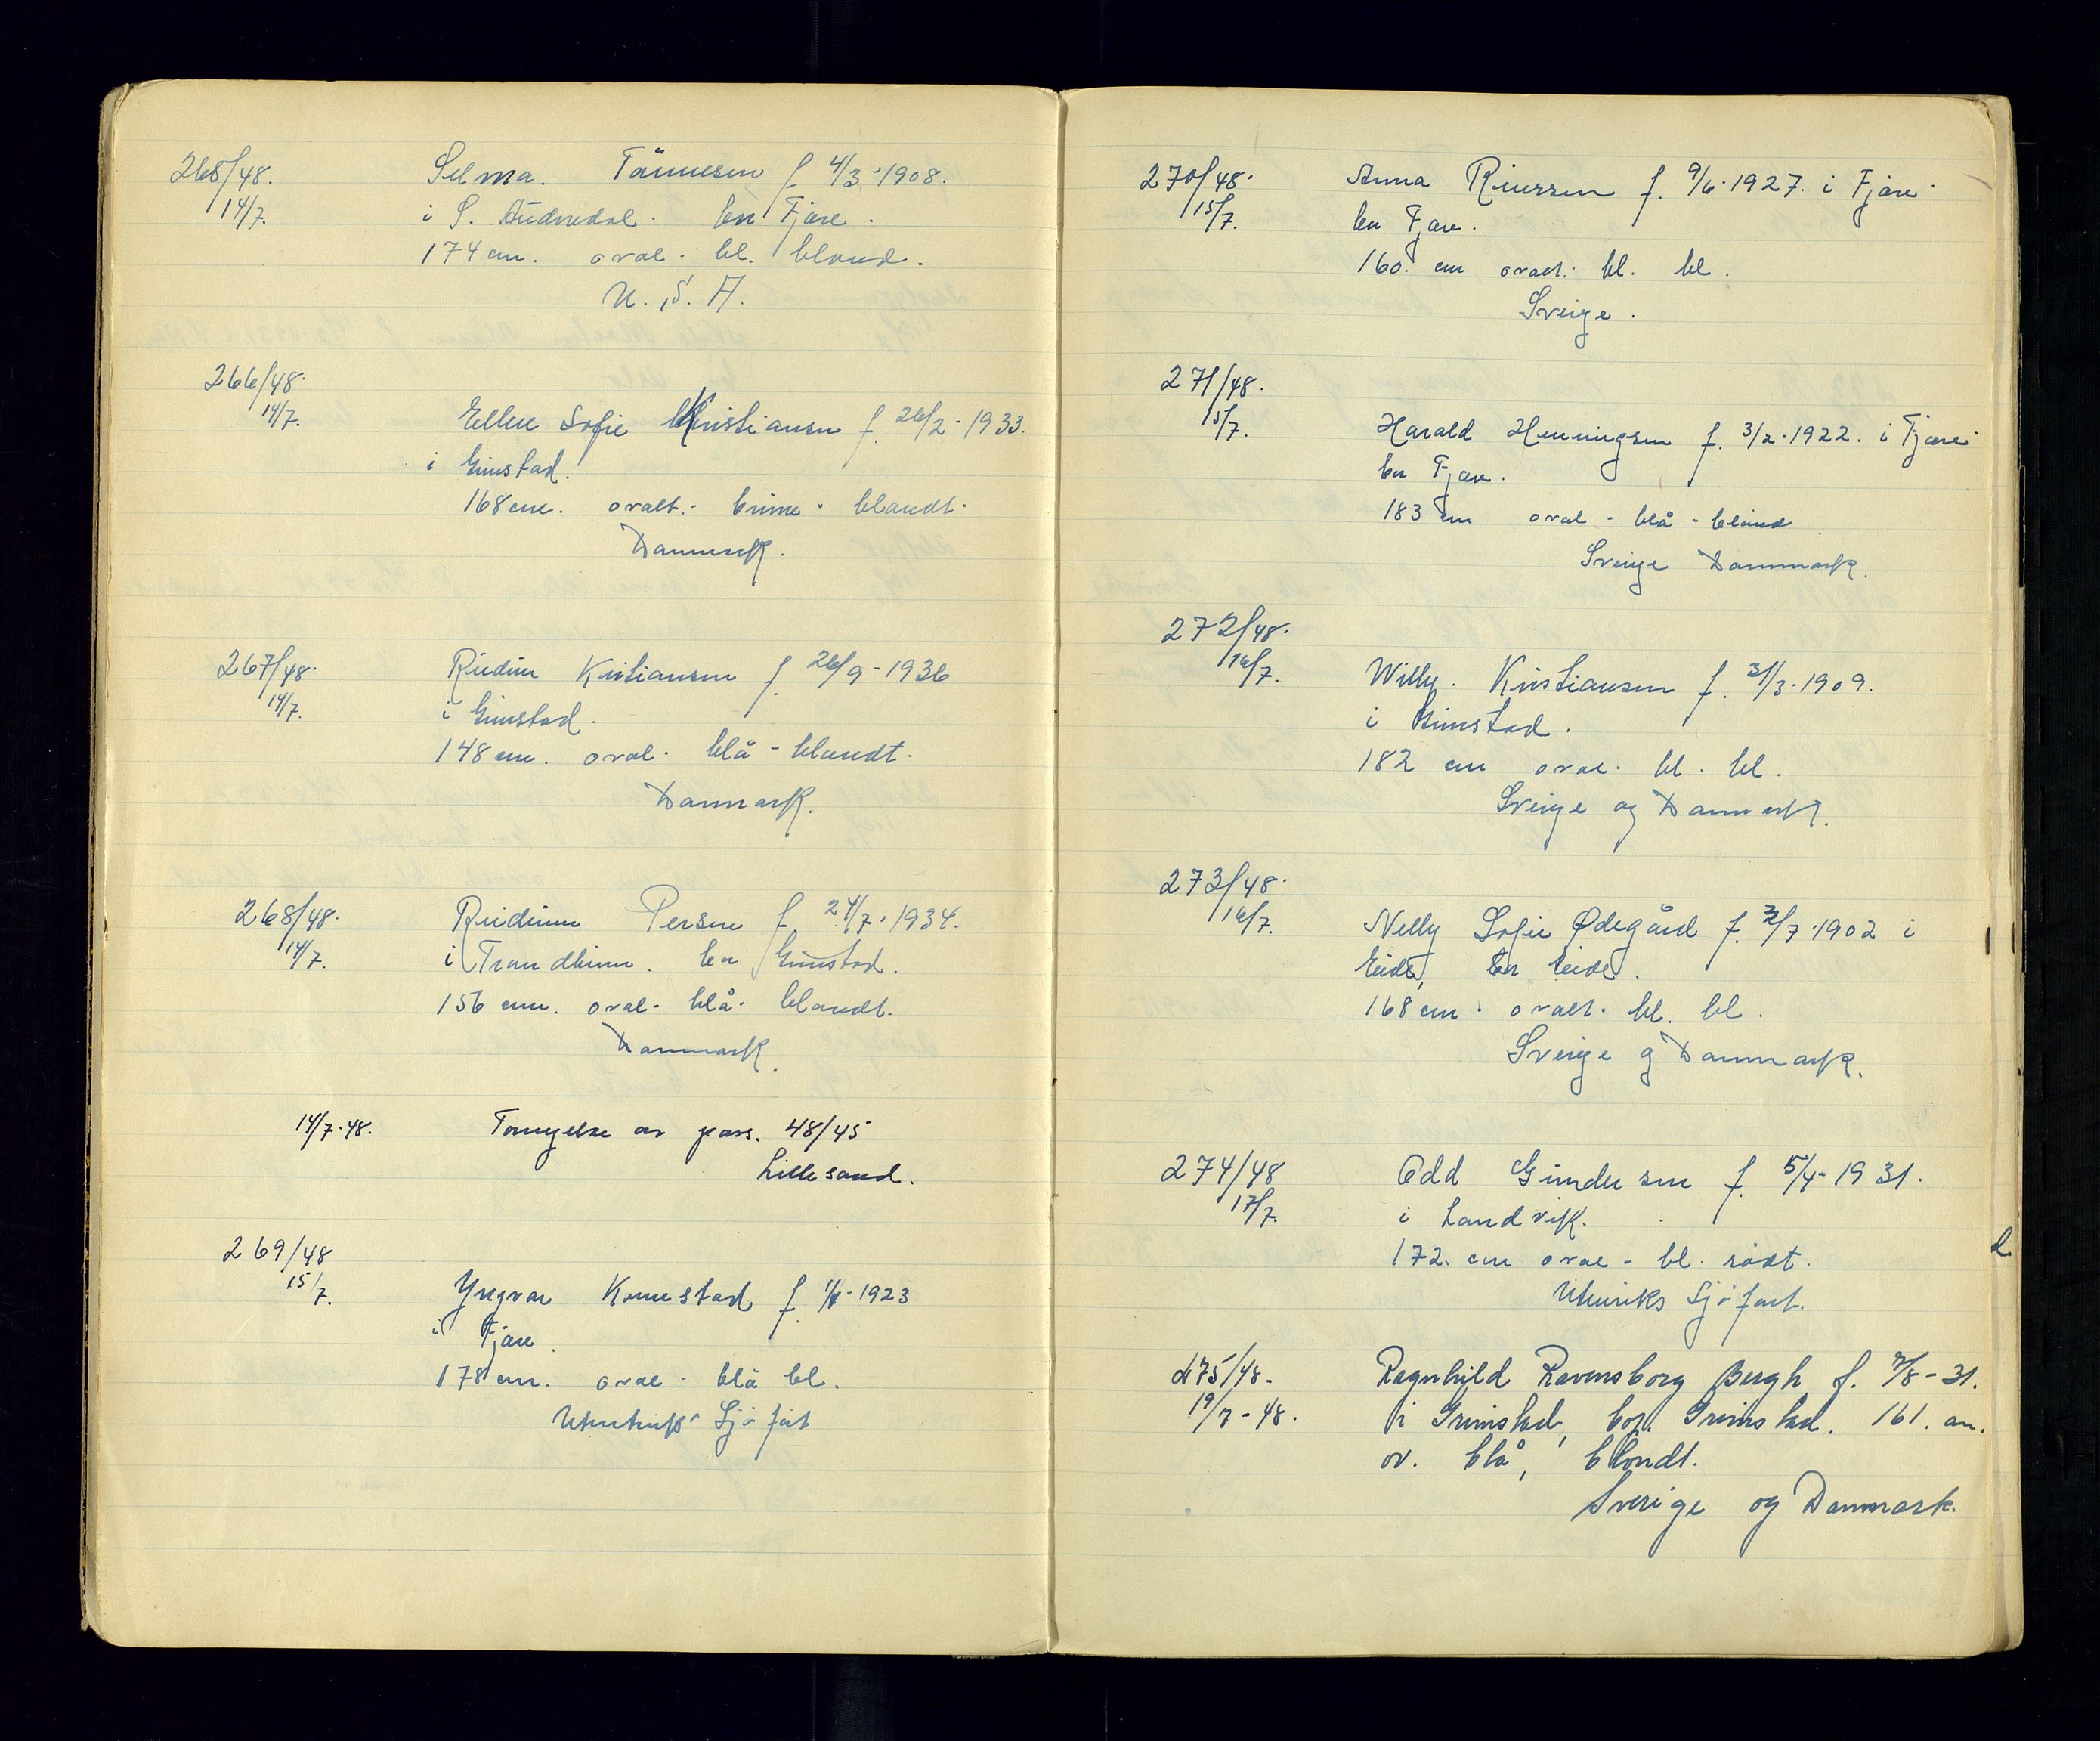 268/48.
14/7.
Selma. Tånnesen f 4/3-1908.
i S. Audnedal. bor Fjære.
174 cm. oval. bl. blond.
U. S. A.
266/48.
14/7.
Ellen Sofie Kristiansen f. 26/2-1933.
i Grimstad.
168 cm. ovalt. brune. blandt.
Danmark.
267/48.
14/7.
Reidun Kristiansen f. 26/9-1936
i Grimstad.
148 cm. oval. blå - blandt.
Danmark.
268/48.
14/7.
Reidunn Persen f. 24/7-1934.
i Trondheim. bor Grimstad.
156 cm. oval. blå. blandt.
Danmark.
14/7-48.
Fornyelse av pass. 48/45
Lillesand.
269/48
15/7.
Yngvar Kornestad f. -1923
i Fjære.
178 cm. oval - blå bl.
Utenriks Sjöfart
270/48.
15/7.
Anna Reiersen f. 9/6-1927. i Fjære.
bor Fjære.
160. cm ovalt. bl. bl.
Sverige.
271/48.
15/7.
Harald Henningsen f. 3/2-1922. i Fjære.
bor Fjære.
183 cm oval - blå - blond
Sverige Danmark.
272/48.
16/7.
Willy. Kristiansen f. 31/3-1909.
i Grimstad.
182 cm oval. bl. bl.
Sverige og Danmark.
273/48.
16/7.
Nelly Sofie Ødegård f. /7-1902 i
Eide, bor Eide.
168 cm. ovalt. bl. bl.
Sverige og Danmark.
274/48
17/7.
Odd Gundersen f. 5/4-1931.
i Landvik.
172. cm oval - bl. rödt.
Utenriks Sjöfart.
275/48.
19/7-48.
Ragnhild Ravensborg Bergh f. 7/8-31.
i Grimstad, bor. Grimstad. 161. cm.
ov. blå, blondt.
Sverige og Danmark.